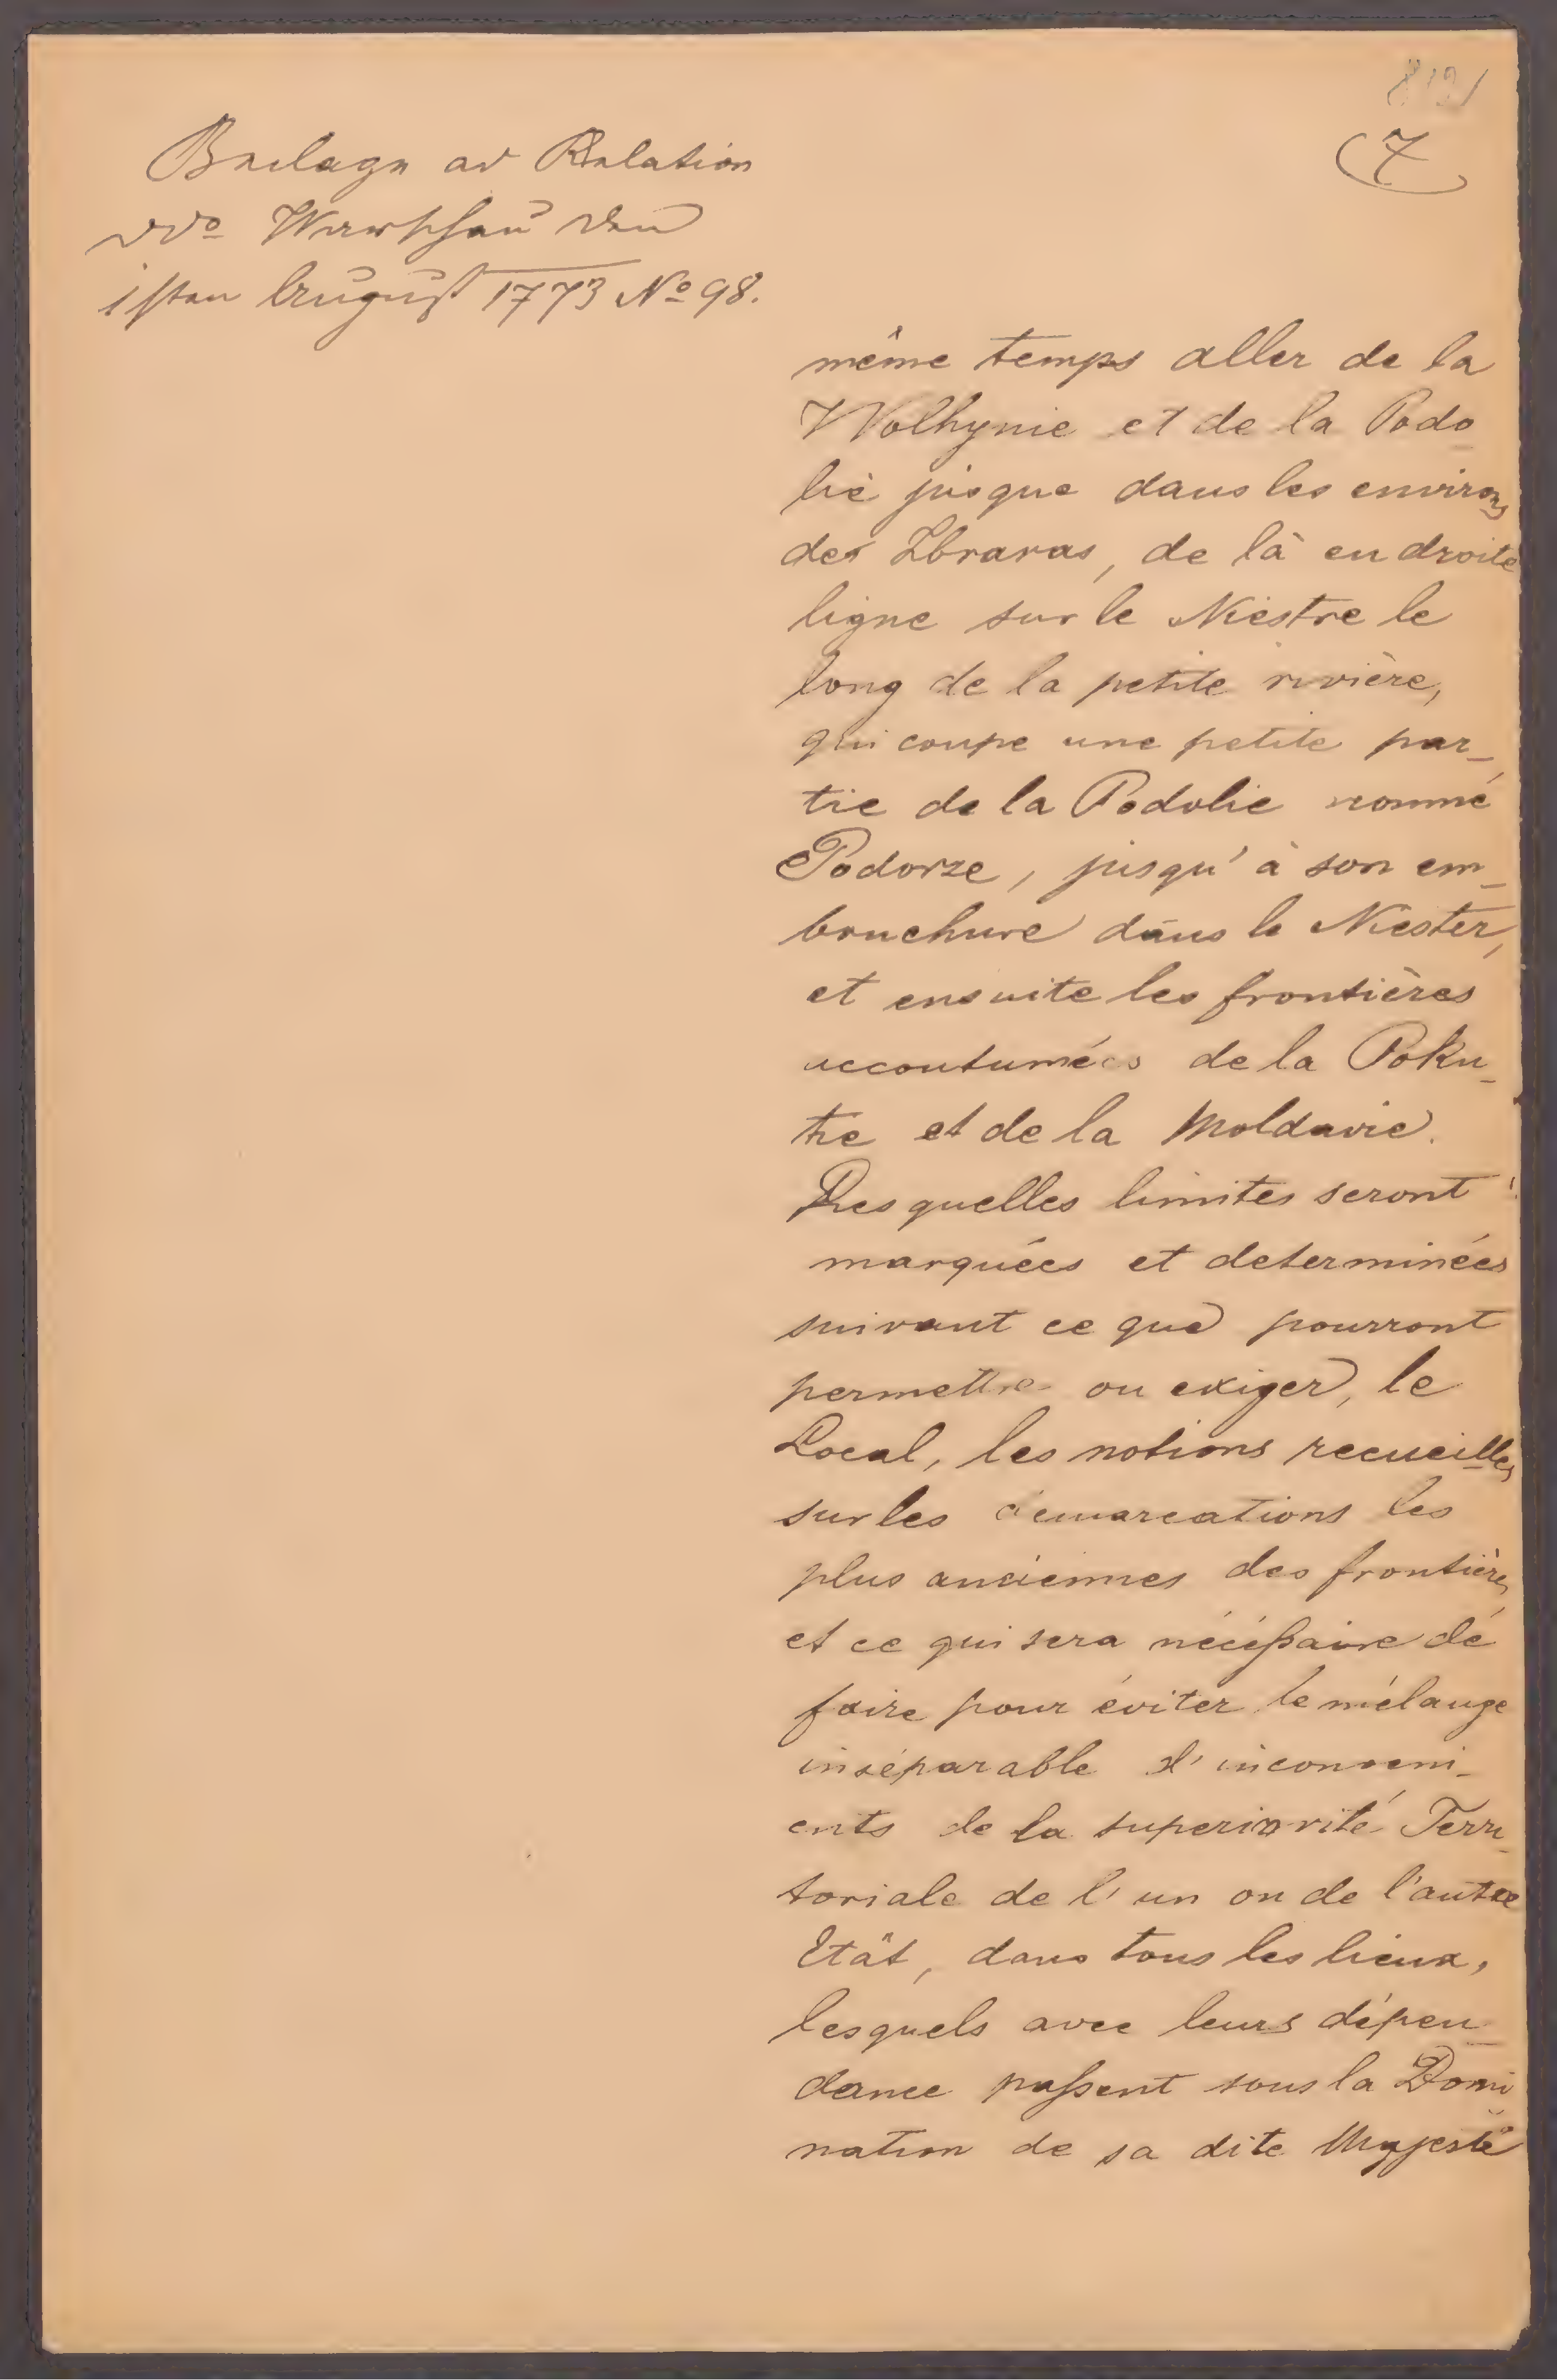 7
Beilage ad Relation
ddo Warschau den
1sten August 1773 No 98.
même temps aller de la
Wolhynie et de la Podo_
lie jusque dans les environs
des Zbraras, de là en droite
ligne sur le Niestre le
long de la petite rivière,
qui coupe une petite par_
tie de la Podolie nommé
Podorze, jusqu'à son em_
bouchure dans le Niester,
et ensuite les frontières
accoutumées de la Poku_
tie et de la Moldavie.
Des quelles limites seront
marquées et determinées
suivant ce que pourront
permettre ou exiger, le
Local, les notions recueilles
sur les demarcations les
plus anciennes des frontières,
et ce qui sera nécéßaire de
faire pour éviter le mélange
inséparable d'inconveni_
ents de la superiorité Terri_
toriale de l'un ou de l'autre
Etât, dans tous les lieux,
lesquels avec leurs dépen_
dance paßent sous la Domi_
nation de sa dite Majesté